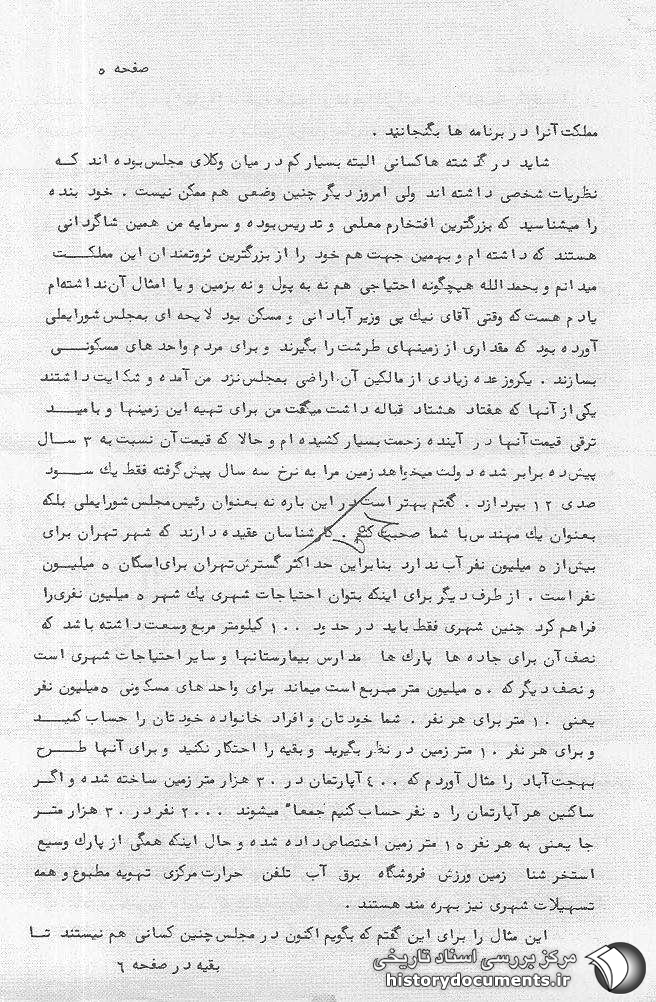 صفحه ۵
مملکت آنرا در برنامه ها بگنجانید .
شاید در گذشته هاکسانی البته بسیار کم در میان وکلای مجلس بوده اند که
نظریات شخصی داشته اند ولی امروز دیگر چنین وضعی هم ممکن نیست . خود بنده
را میشناسید که بزرگترین افتخارم معلمی و تدریس بوده و سرمایه من همین شاگردانی
هستند که داشته ام و بهمین جهت هم خود را از بزرگترین ثروتمندان این مملکت
میدانم و بحمدالله هیچگونه احتیاجی هم نه به پول و نه بزمین و یا امثال آن نداشته ام
یادم هست که وقتی آقای نیک پی وزیر آبادانی و مسکن بود لایحه ای بمجلس شورایملی
آورده بود که مقداری از زمینهای طرشت را بگیرند و برای مردم واحدهای مسکونی
بسازند . یکروز عده زیادی از مالکین آن اراضی بمجلس نزد من آمده و شکایت داشتند
یکی از آنها که هفتاد هشتاد قباله داشت میگفت من برای تهیه این زمینها و بامید
ترقی قیمت آنها در آینده زحمت بسیار کشیده ام و حالا که قیمت آن نسبت به ۳ سال
پیش ده برابر شده دولت میخواهد زمین مرا به نرخ سه سال پیش گرفته فقط یک سود
صدی ۱۲ بپردازد . گفتم بهتر است در این باره نه بعنوان رئیس مجلس شورایملی بلکه
بعنوان یک مهندس با شما صحبت کنم . کارشناسان عقیده دارند که شهر تهران برای
بیش از ۵ میلیون نفر آب ندارد بنابراین حداکثر گسترش تهران برای اسکان ۵ میلیون
نفر است . از طرف دیگر برای اینکه بتوان احتیاجات شهری یک شهر ۵ میلیون نفری را
فراهم کرد چنین شهری فقط باید در حدود ۱۰۰ کیلومتر مربع وسعت داشته باشد که
نصف آن برای جاده ها پارک ها مدارس بیمارستانها و سایر احتیاجات شهری است
و نصف دیگر که ۵۰ میلیون متر مربع است میماند برای واحدهای مسکونی ۵ میلیون نفر
یعنی ۱۰ متر برای هر نفر . شما خودتان و افراد خانواده خودتان را حساب کنید
و برای هر نفر ۱۰ متر زمین در نظر بگیرید و بقیه را احتکار نکنید و برای آنها طرح
بهجت آباد را مثال آوردم که ۴۰۰ آپارتمان در ۳۰ هزار متر زمین ساخته شده و اگر
ساکنین هر آپارتمان را ۵ نفر حساب کنیم جمعاً میشوند ۲۰۰۰ نفر در ۳۰ هزار متر
جا یعنی به هر نفر ۱۵ متر زمین اختصاص داده شده و حال اینکه همگی از پارک وسیع
استخر شنا زمین ورزش فروشگاه برق آب تلفن حرارت مرکزی تهویه مطبوع و همه
تسهیلات شهری نیز بهره مند هستند .
این مثال را برای این گفتم که بگویم اکنون در مجلس چنین کسانی هم نیستند تا
بقیه در صفحه ۶
مرکز بررسی اسناد تاریخی
historydocuments.ir